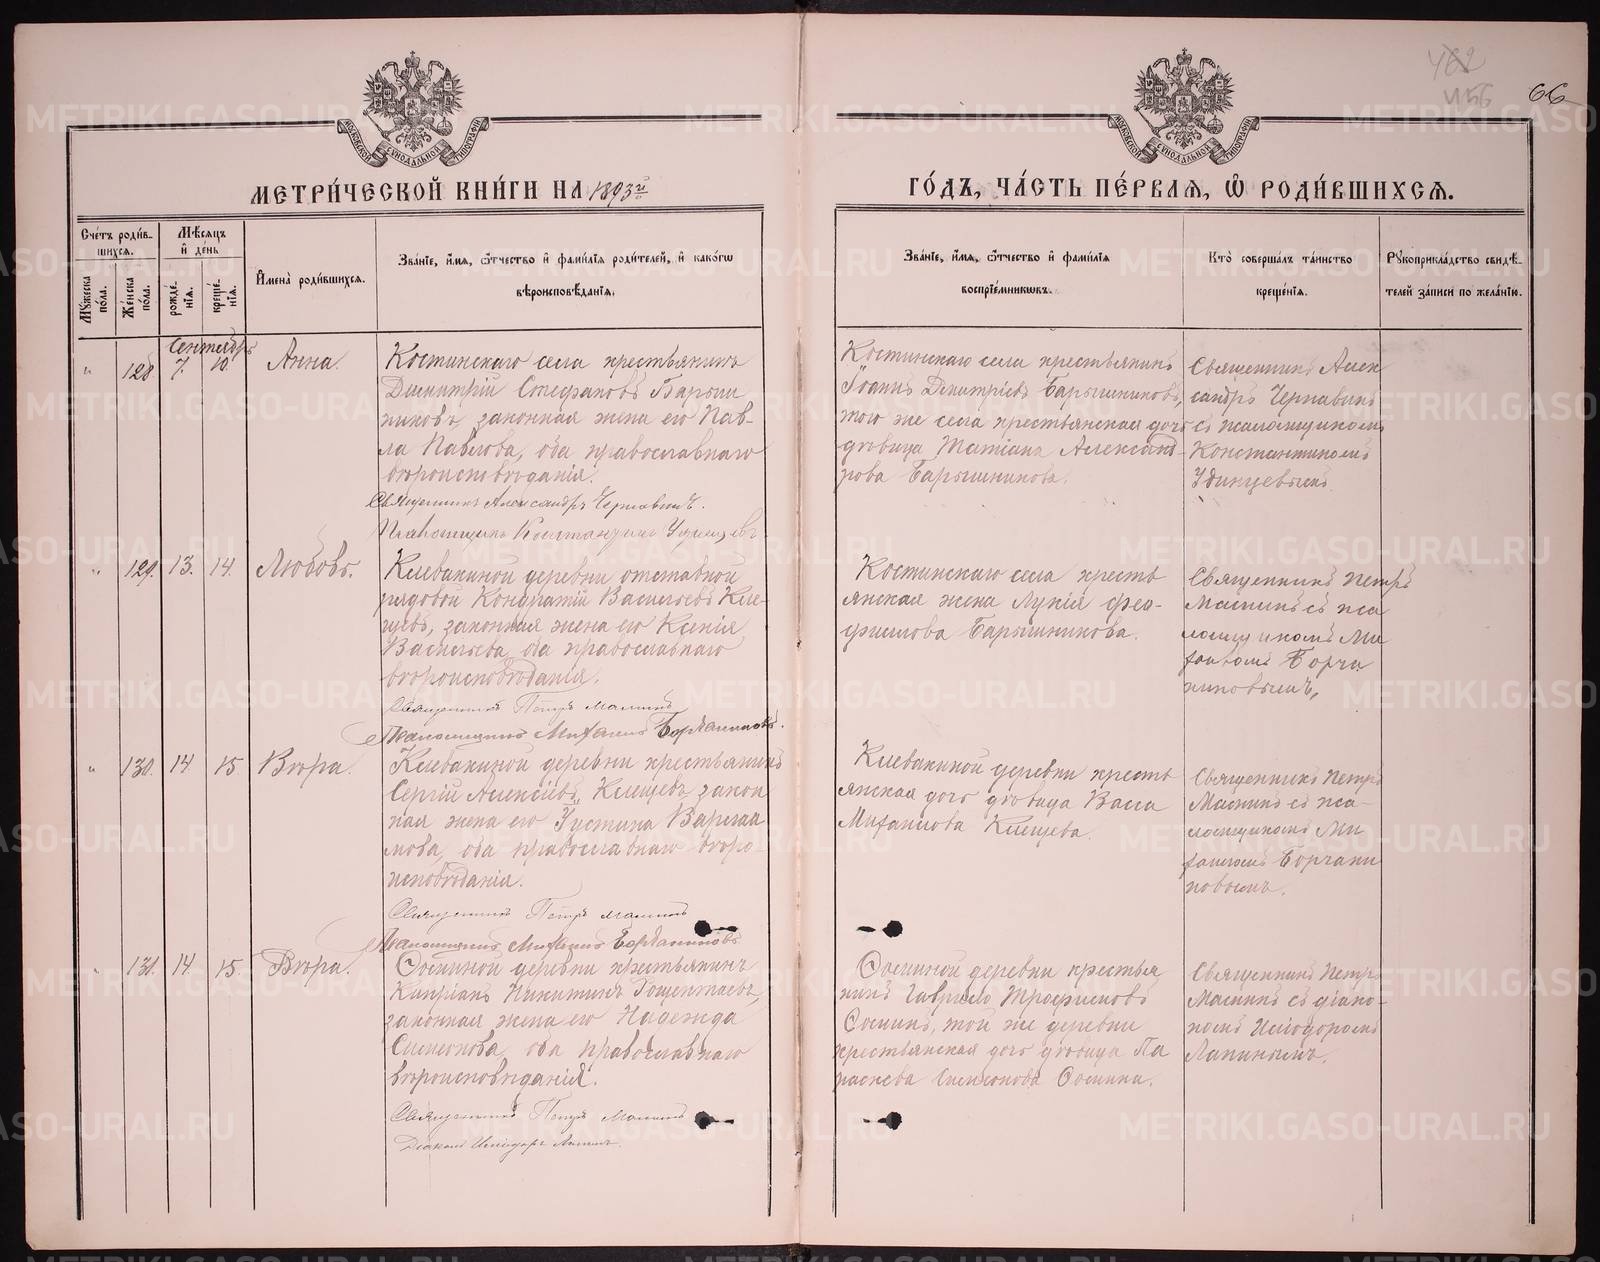 462
456
66
МЕТРИ́ЧЕСКОЙ КНИ́ГИ НА 1893й
ГО́ДЪ, ЧА́СТЬ ПЕ́РВАЯ, Ѽ РОДИ́ВШИХСЯ.
Сче́тъ роди́в-
шихся.
Мѣ́сяцъ
и҆ де́нь
Мꙋ́жеска по́ла.
Же́нска по́ла.
рожде́-
нїя.
креще́-
нїя.
И҆мена̀ роди́вшихся.
Зва́нїе, и҆́мя, ѻ҆́тчество и҆ фами́лїя роди́телей, и҆ како́гѡ
вѣроисповѣ́данїя.
Зва́нїе, и҆́мя, ѻ҆́тчество и҆ фами́лїя
воспрїе́мникѡвъ.
Кто̀ соверша́лъ та́инство
креще́нїя.
Рꙋкоприкла́дство свидѣ́-
телей за́писи по жела́нїю.
Сентябрь
" 128 7. 10. Анна.
Костинскаго села крестьянинъ
Димитрій Стефановъ Барыш
никовъ, законная жена его Пав-
ла Павлова, оба православнаго
вѣроисповѣданія.
Священникъ Александръ Чернавинъ.
Псаломщикъ Константинъ Удинцевъ
Костинскаго села крестьянинъ
Іоаннъ Дмитріевъ Барышниковъ,
того же села крестьянская дочь
дѣвица Татіана Александ-
рова Барышникова.
Священникъ Алек
сандръ Чернавинъ
съ псаломщикомъ
Константиномъ
Удинцевымъ
" 129. 13. 14. Любовь.
Клевакиной деревни отставной
рядовой Кондратій Васильевъ Кле-
щевъ, законная жена его Ксенія
Васильева, оба православнаго
вѣроисповѣданія.
Священникъ Петръ Маминъ
Псаломщикъ Михаилъ Борчаниновъ.
Костинскаго села кресть
янская жена Лукія Фео-
филова Барышникова.
Священникъ Петръ
Маминъ съ пса
ломщикомъ Ми
хаиломъ Борча
ниновымъ,
" 130. 14. 15. Вѣра.
Клевакиной деревни крестьянинъ
Сергій Алексіевъ Клещевъ, закон
ная жена его Іустина Варлаа
мова, оба православнаго вѣро-
исповѣданія.
Священникъ Петръ Маминъ
Псаломщикъ Михаилъ Борчаниновъ
Клевакиной деревни кресть
янская дочь дѣвица Васса
Михаилова Клещева.
Священникъ Петръ
Маминъ съ пса-
ломщикомъ Ми
хаиломъ Борчани
новымъ.
" 131. 14. 15. Вѣра.
Ѳоминой деревни крестьянинъ
Капріанъ Никитинъ
законная жена его Надежда
Симеонова, оба православнаго
вѣроисповѣданія.
Священникъ Петръ Маминъ
Діаконъ Исидоръ Лапинъ.
Ѳоминой деревни крестья
нинъ Гавріилъ Трофимовъ
Ѳоминъ, той же деревни
крестьянская дочь дѣвица Па
раскева Симеонова Ѳомина.
Священникъ Петръ
Маминъ съ діако-
номъ Исидоромъ
Лапинымъ.
METRIKI.GASO-URAL.RU